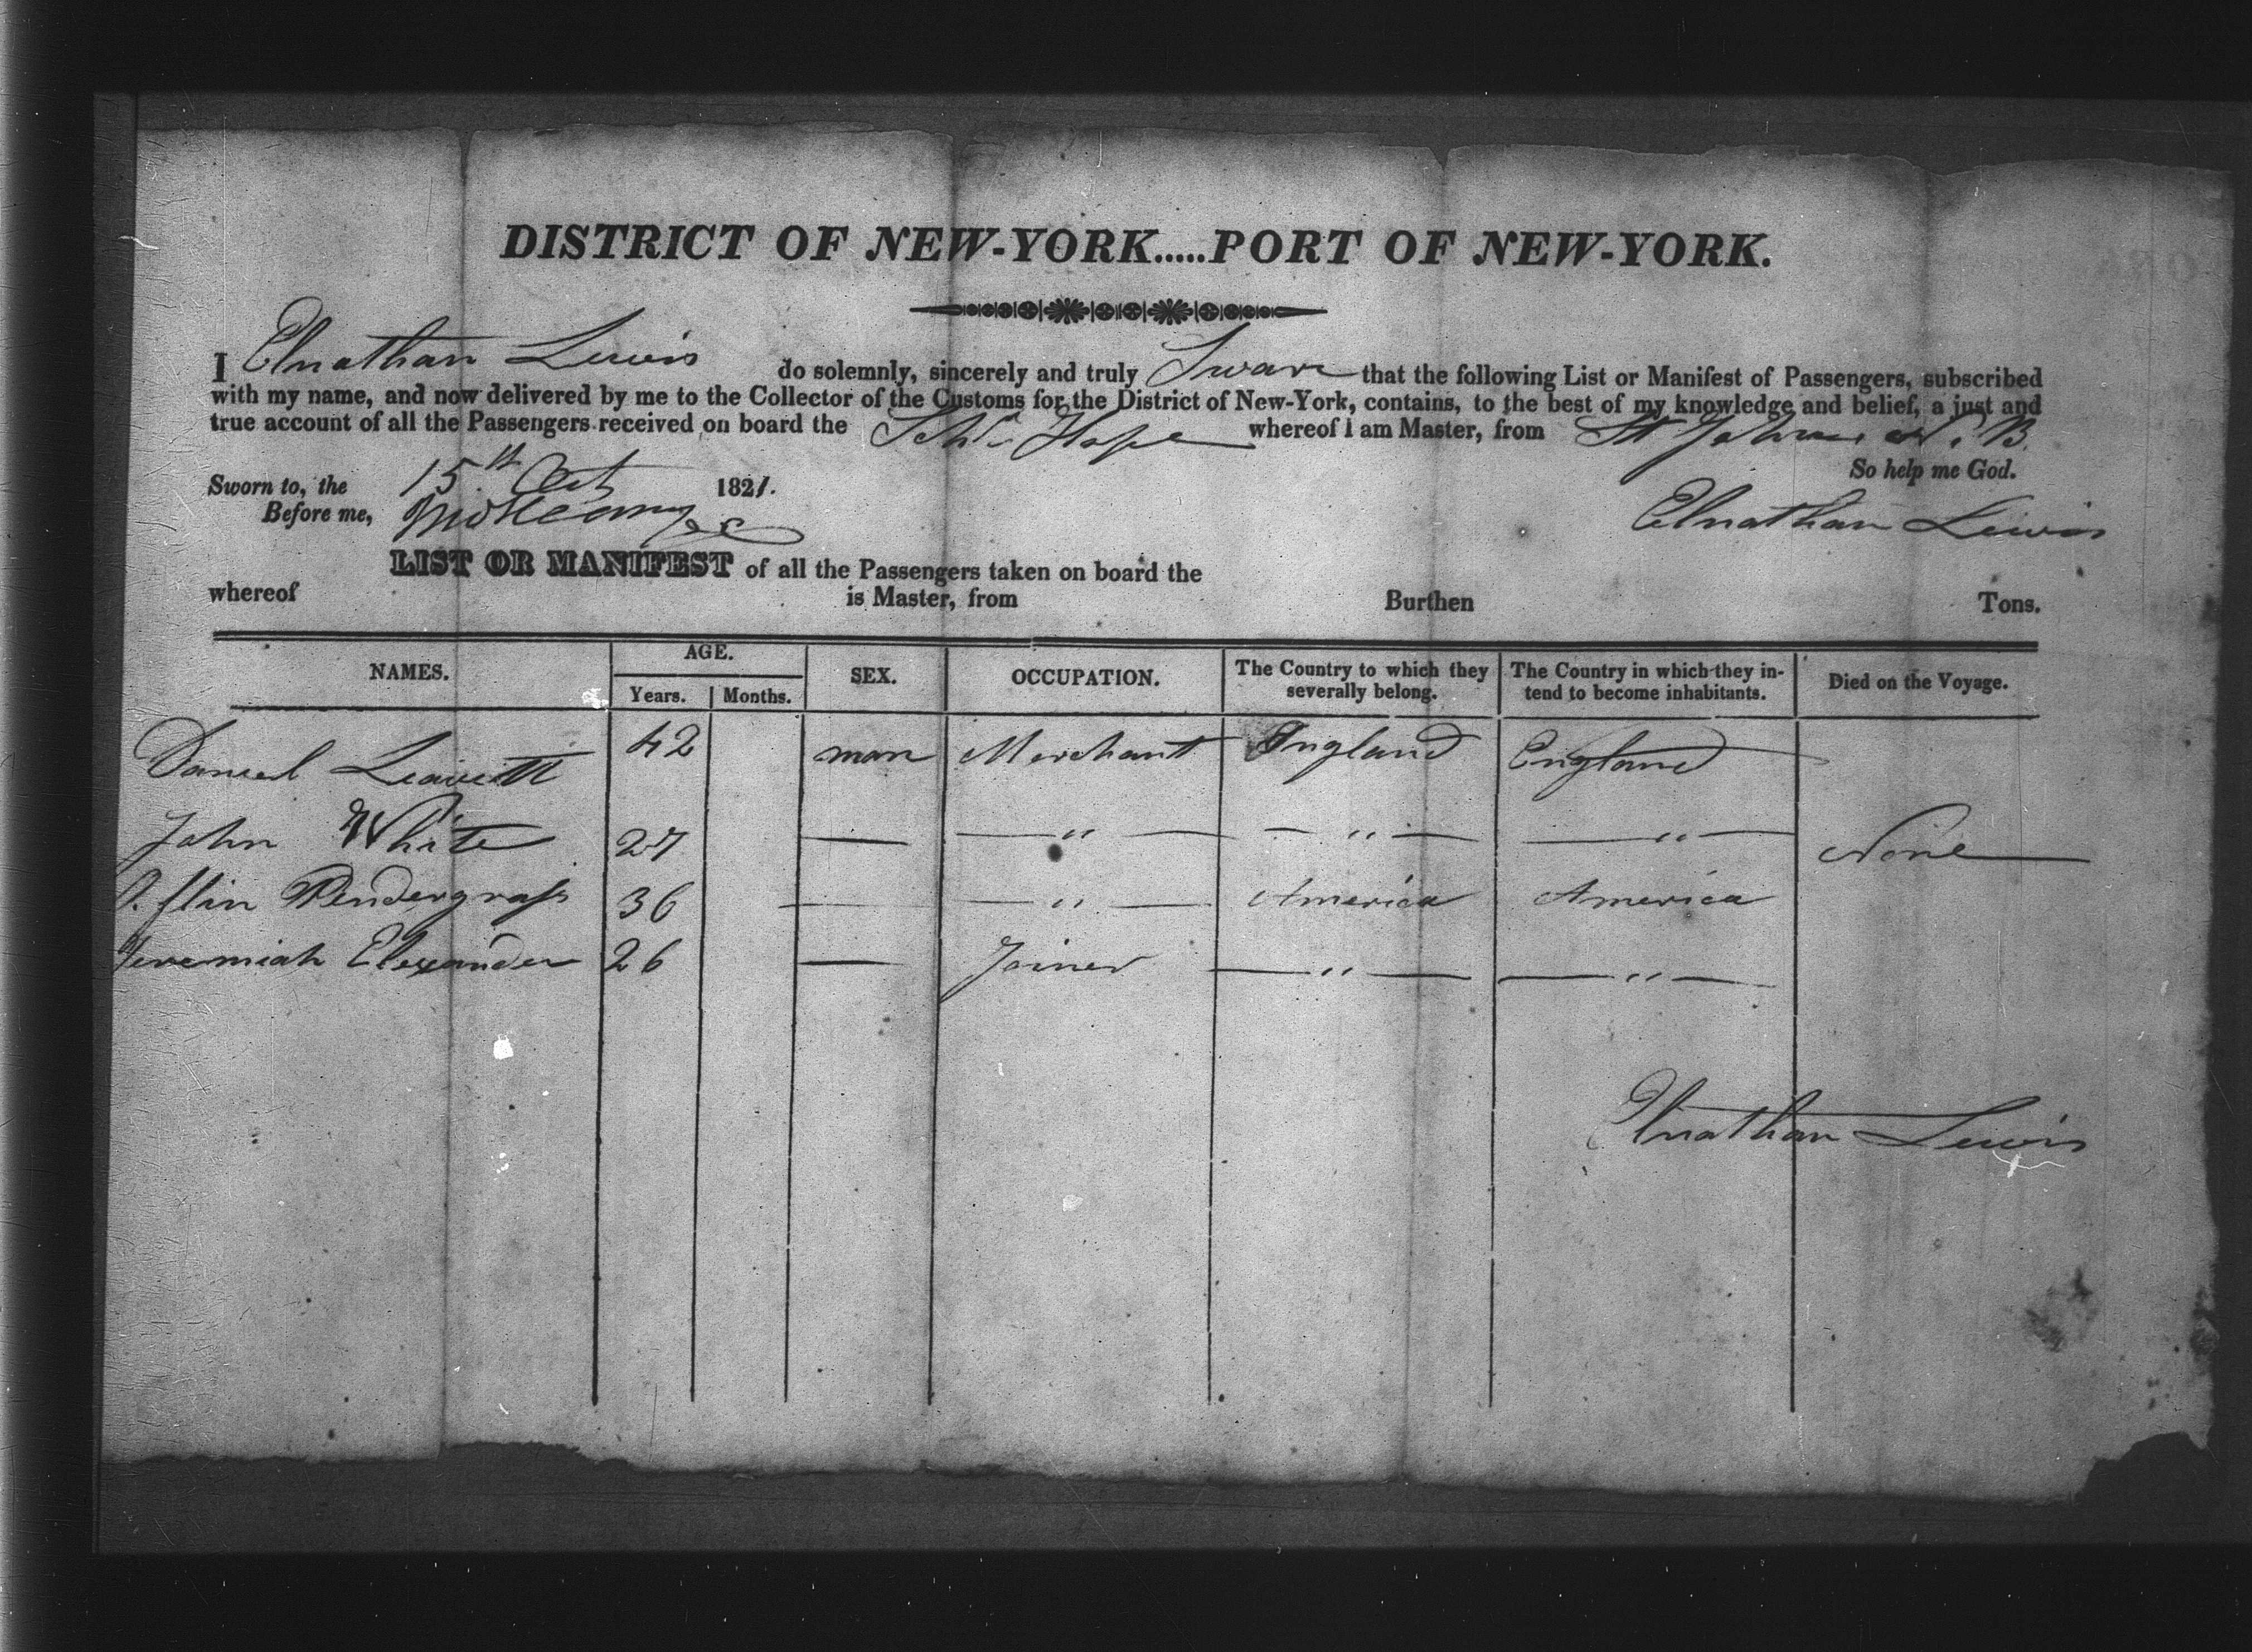 DISTRICT OF NEW-YORK.....PORT OF NEW-YORK.
I Elnathan Lewis do solemnly, sincerely and truly Swear that the following List or Manifest of Passengers, subscribed
with my name, and now delivered by me to the Collector of the Customs for the District of New-York, contains, to the best of my knowledge and belief, a just and
true account of all the Passengers received on board the Schr Hope whereof I am Master, from St Johns N. B.
So help me God.
Sworn to, the 15th Oct 1821.
Before me, Elnathan Lewis
LIST OR MANIFEST of all the Passengers taken on board the
whereof is Master, from Burthen Tons.
NAMES. AGE. Years. Months. SEX. OCCUPATION. The Country to which they severally belong. The Country in which they intend to become inhabitants. Died on the Voyage.
Daniel Leavett 42 man Merchant England England
John White 27 — — " — — " — — " — None
Pendergrass 36 — — " — America America
Jeremiah Elexander 26 — Joiner — " — — " —
Elnathan Lewis